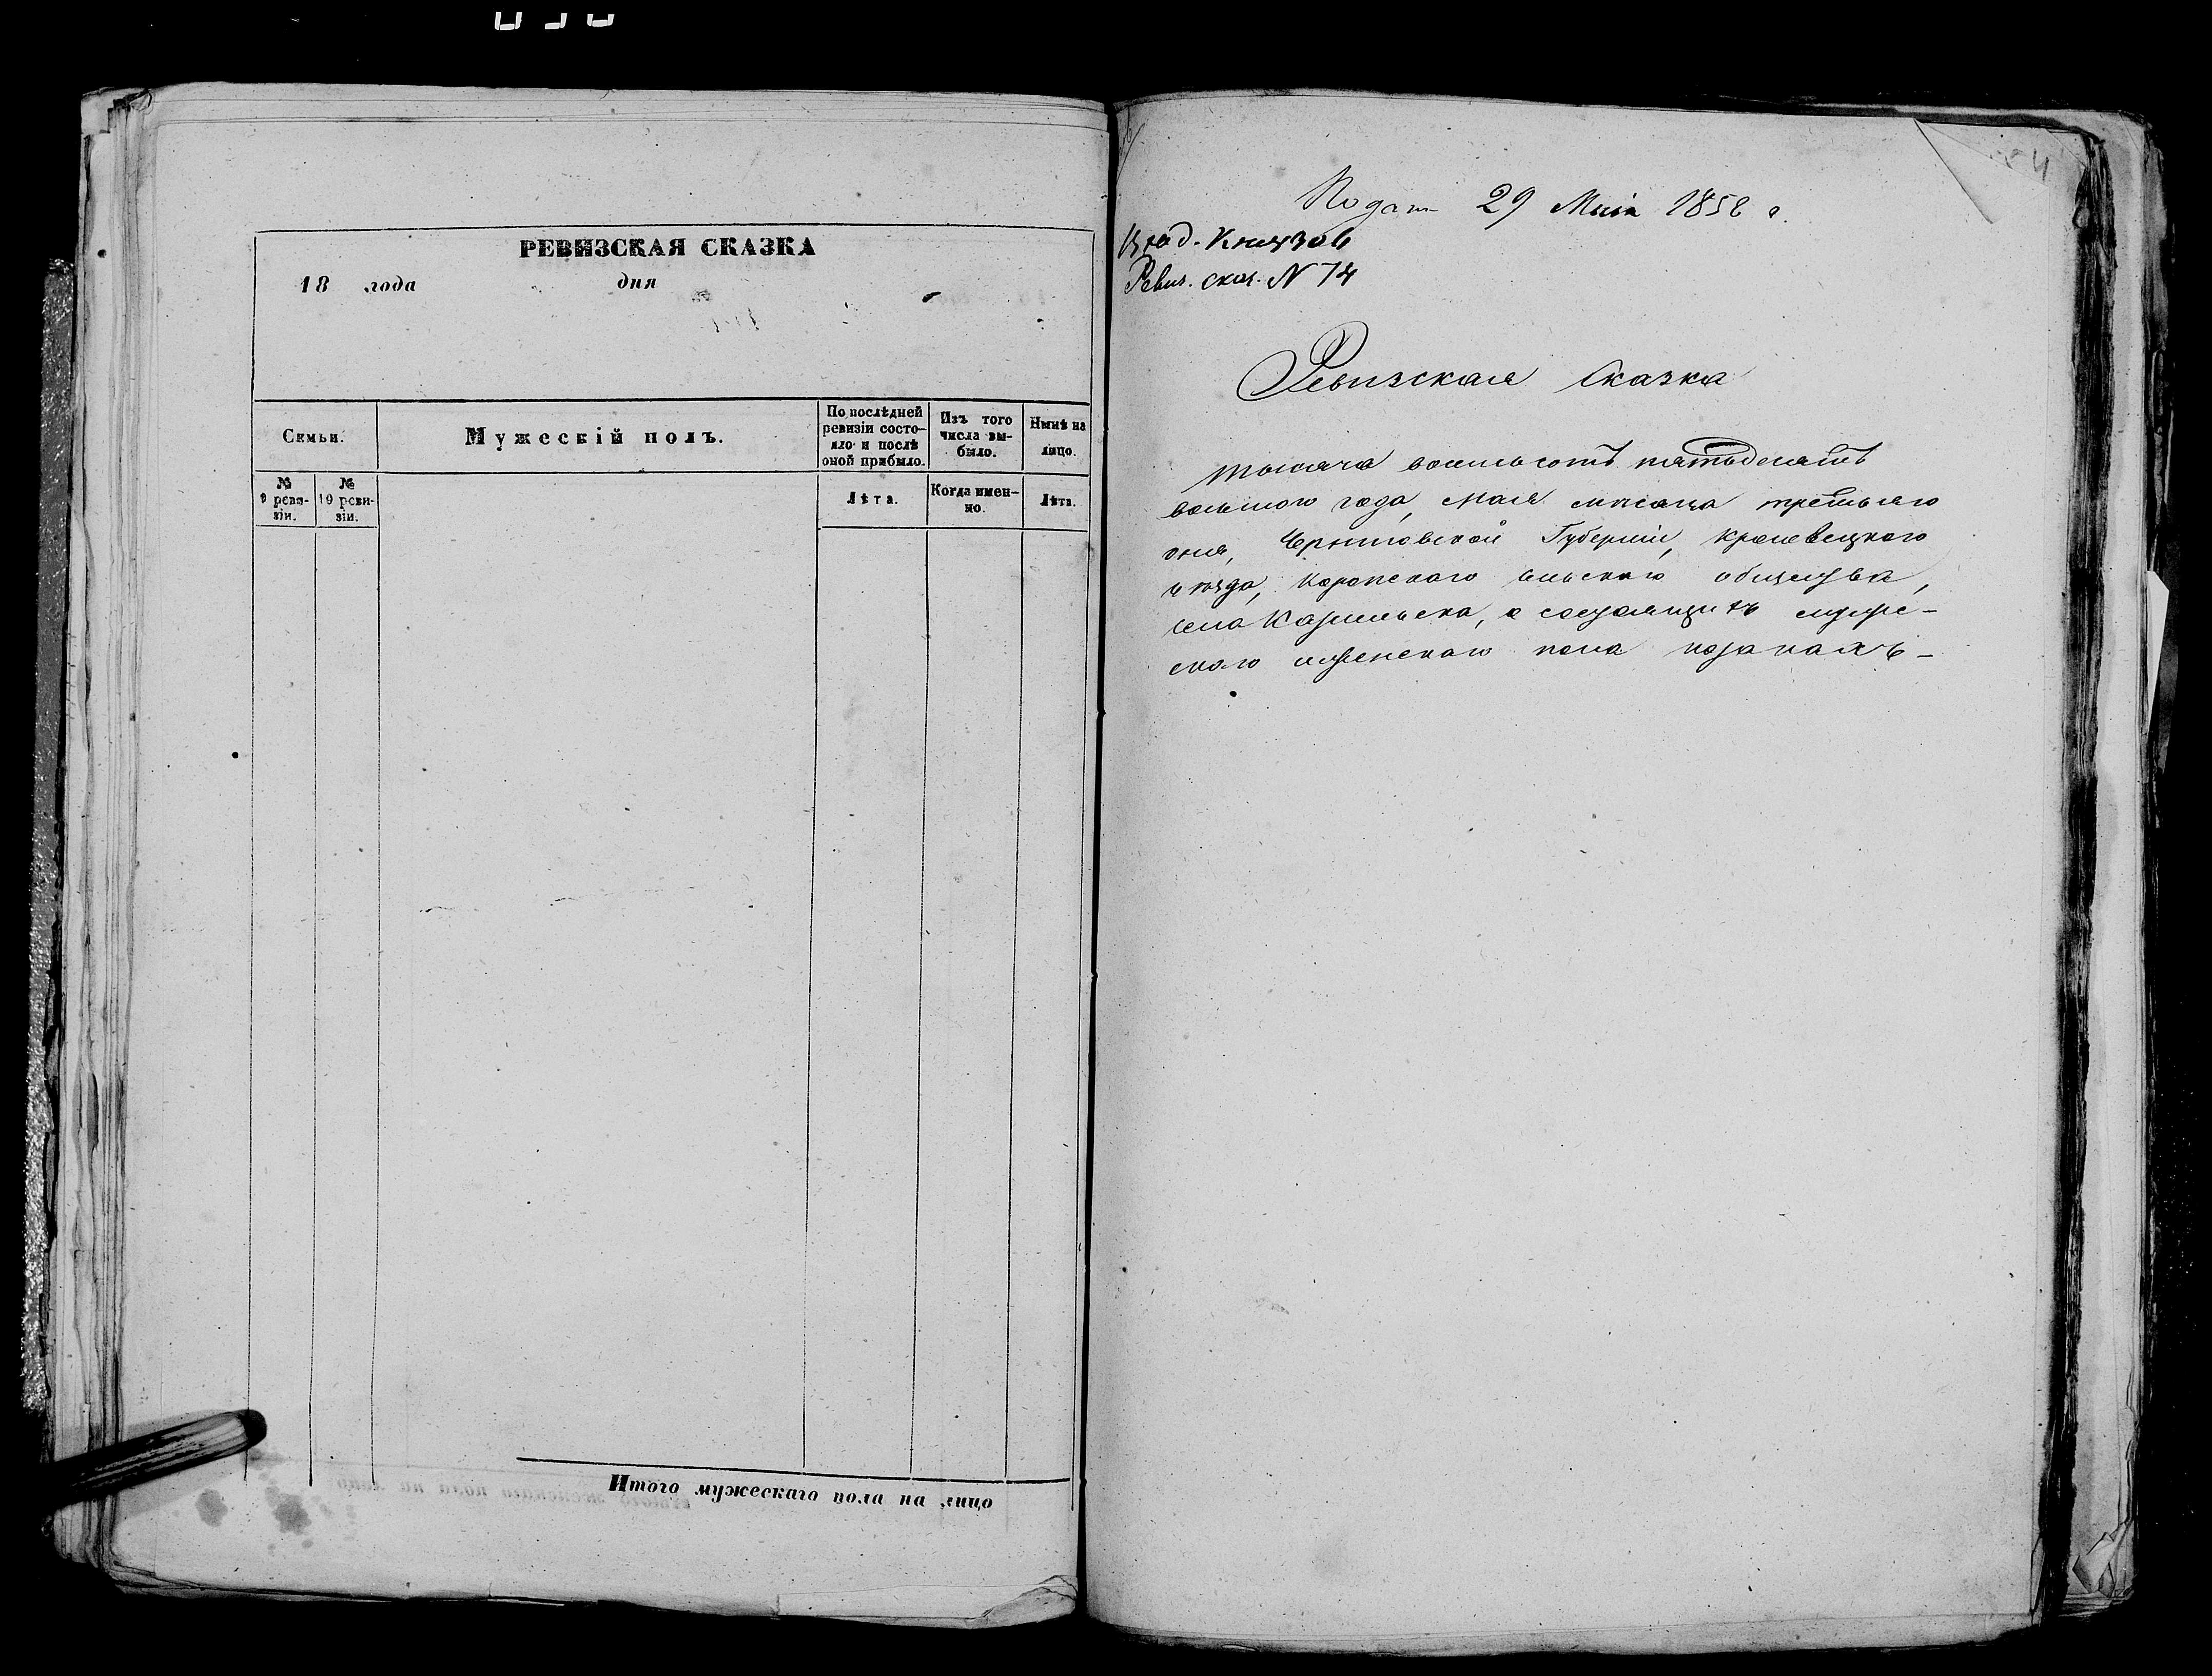 РЕВИЗСКАЯ СКАЗКА
18 года дня
Семьи.
Мужескій полъ.
По послѣдней ревизіи состо-яло и послѣ оной прибыло.
Изъ того числа вы-было.
Нынѣ на лицо.
№ 9 реви-зіи.
№ 10 реви-зіи.
Лѣта.
Когда имен-но.
Лѣта.
Итого мужескаго пола на лицо
29 Маія 1858 г.
Ревиз. сказ. N 74
Ревизская Сказка
тысяча восемьсотъ пятьдесятъ
восьмого года, мая мѣсяца третьяго
дня, Черниговской Губерніи, Кролевецкого
уѣзда, Коропского сельского общества,
села Карильска, о состоящихъ муже-
ского и женскаго пола козакахъ-